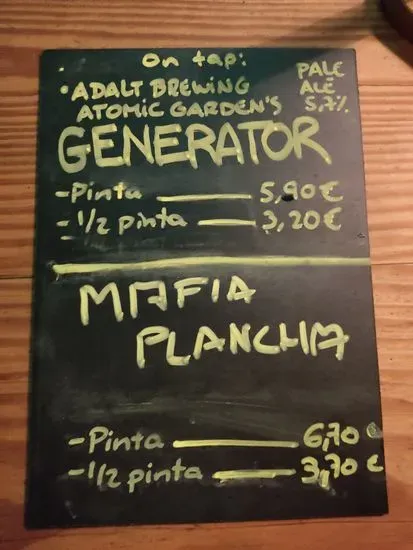 On tap:
• ADALT BREWING
ATOMIC GARDEN'S
PALE
ALE
5,7%
GENERATOR
- Pinta — 5,90€
- 1/2 pinta — 3,20€
MAFIA
PLANCHA
- Pinta — 6,70€
- 1/2 pinta — 3,70€